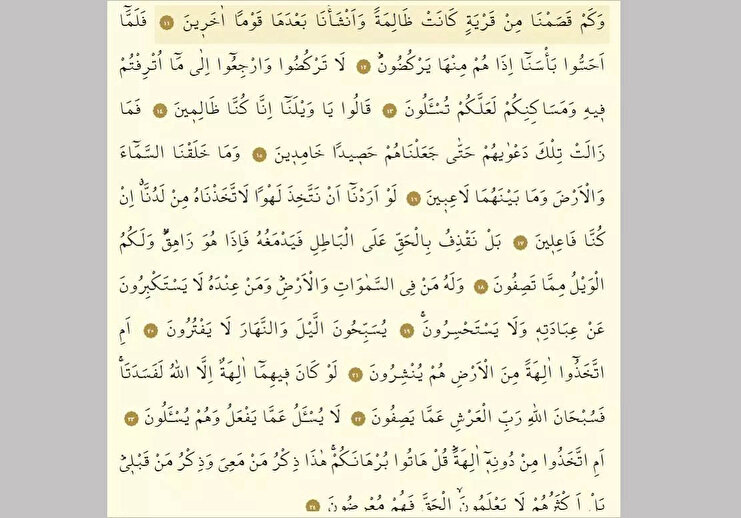 وَكَمْ قَصَمْنَا مِنْ قَرْيَةٍ كَانَتْ ظَالِمَةً وَاَنْشَأْنَا بَعْدَهَا قَوْمًا اٰخَرٖينَ ﴿١١﴾ فَلَمَّٓا
اَحَسُّوا بَأْسَنَٓا اِذَا هُمْ مِنْهَا يَرْكُضُونَۜ ﴿١٢﴾ لَا تَرْكُضُوا وَارْجِعُٓوا اِلٰى مَٓا اُتْرِفْتُمْ
فٖيهِ وَمَسَاكِنِكُمْ لَعَلَّكُمْ تُسْـَٔلُونَ ﴿١٣﴾ قَالُوا يَا وَيْلَنَٓا اِنَّا كُنَّا ظَالِمٖينَ ﴿١٤﴾ فَمَا
زَالَتْ تِلْكَ دَعْوٰيهُمْ حَتّٰى جَعَلْنَاهُمْ حَصٖيدًا خَامِدٖينَ ﴿١٥﴾ وَمَا خَلَقْنَا السَّمَٓاءَ
وَالْاَرْضَ وَمَا بَيْنَهُمَا لَاعِبٖينَ ﴿١٦﴾ لَوْ اَرَدْنَٓا اَنْ نَتَّخِذَ لَهْوًا لَاتَّخَذْنَاهُ مِنْ لَدُنَّاۗ اِنْ
كُنَّا فَاعِلٖينَ ﴿١٧﴾ بَلْ نَقْذِفُ بِالْحَقِّ عَلَى الْبَاطِلِ فَيَدْمَغُهُ فَاِذَا هُوَ زَاهِقٌۜ وَلَكُمُ
الْوَيْلُ مِمَّا تَصِفُونَ ﴿١٨﴾ وَلَهُ مَنْ فِى السَّمٰوَاتِ وَالْاَرْضِۜ وَمَنْ عِنْدَهُ لَا يَسْتَكْبِرُونَ
عَنْ عِبَادَتِهٖ وَلَا يَسْتَحْسِرُونَۚ ﴿١٩﴾ يُسَبِّحُونَ الَّيْلَ وَالنَّهَارَ لَا يَفْتُرُونَ ﴿٢٠﴾ اَمِ
اتَّخَذُٓوا اٰلِهَةً مِنَ الْاَرْضِ هُمْ يُنْشِرُونَ ﴿٢١﴾ لَوْ كَانَ فٖيهِمَٓا اٰلِهَةٌ اِلَّا اللّٰهُ لَفَسَدَتَاۚ
فَسُبْحَانَ اللّٰهِ رَبِّ الْعَرْشِ عَمَّا يَصِفُونَ ﴿٢٢﴾ لَا يُسْـَٔلُ عَمَّا يَفْعَلُ وَهُمْ يُسْـَٔلُونَ ﴿٢٣﴾
اَمِ اتَّخَذُوا مِنْ دُونِهٖٓ اٰلِهَةًۜ قُلْ هَاتُوا بُرْهَانَكُمْۚ هٰذَا ذِكْرُ مَنْ مَعِىَ وَذِكْرُ مَنْ قَبْلٖىۜ
بَلْ اَكْثَرُهُمْ لَا يَعْلَمُونَۙ الْحَقَّ فَهُمْ مُعْرِضُونَ ﴿٢٤﴾